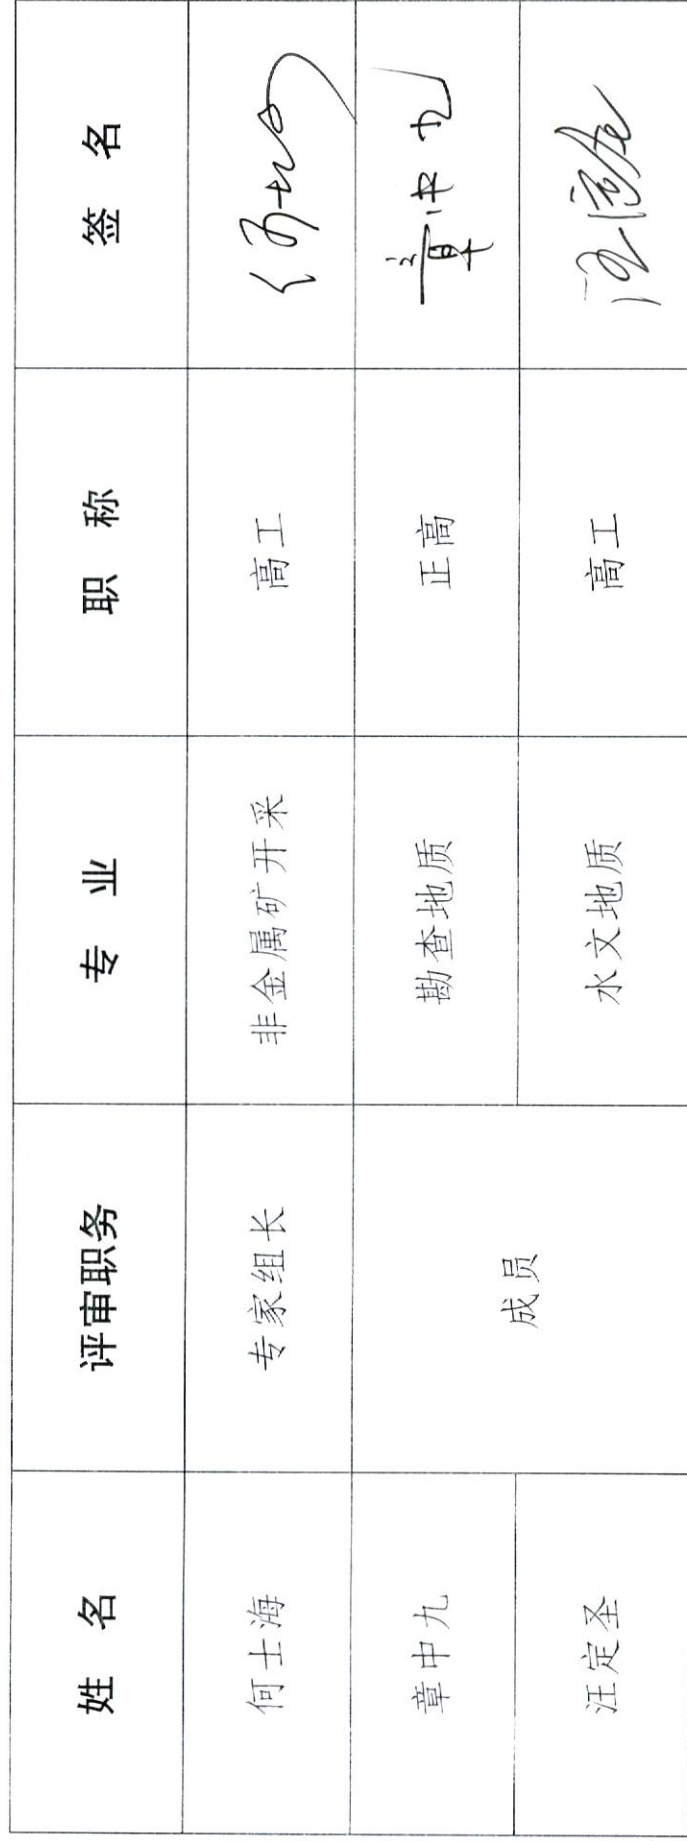 姓 名 评审职务 专 业 职 称 签 名
何士海 专家组长 非金属矿开采 高工 何士海
章中九 成员 勘查地质 正高 章中九
汪定圣 水文地质 高工